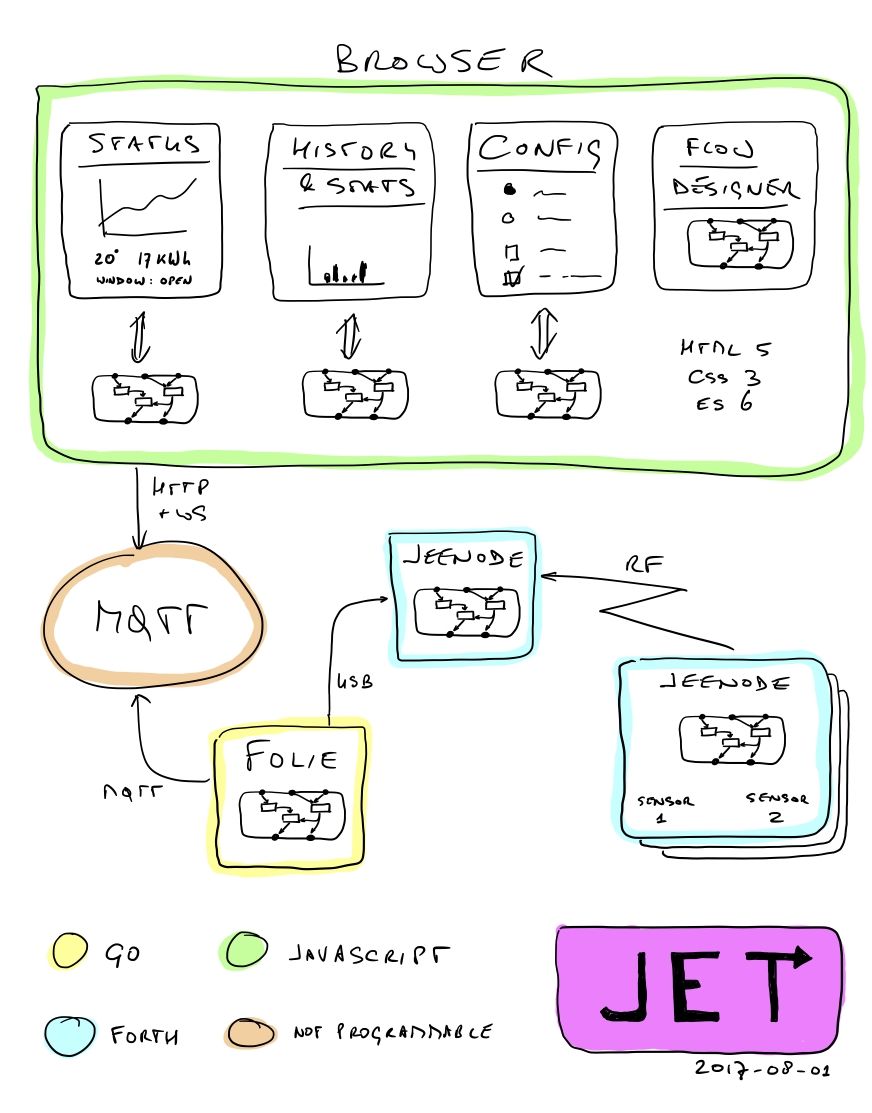 BROWSER
STATUS
20° 17 KWh
WINDOW: OPEN
HISTORY
& STATS
CONFIG
FLOW
DESIGNER
HTML 5
CSS 3
ES 6
HTTP
+ WS
MQTT
JEENODE
RF
USB
JEENODE
SENSOR
1
SENSOR
2
FOLIE
MQTT
GO
JAVASCRIPT
FORTH
NOT PROGRAMMABLE
JET
2017-08-01